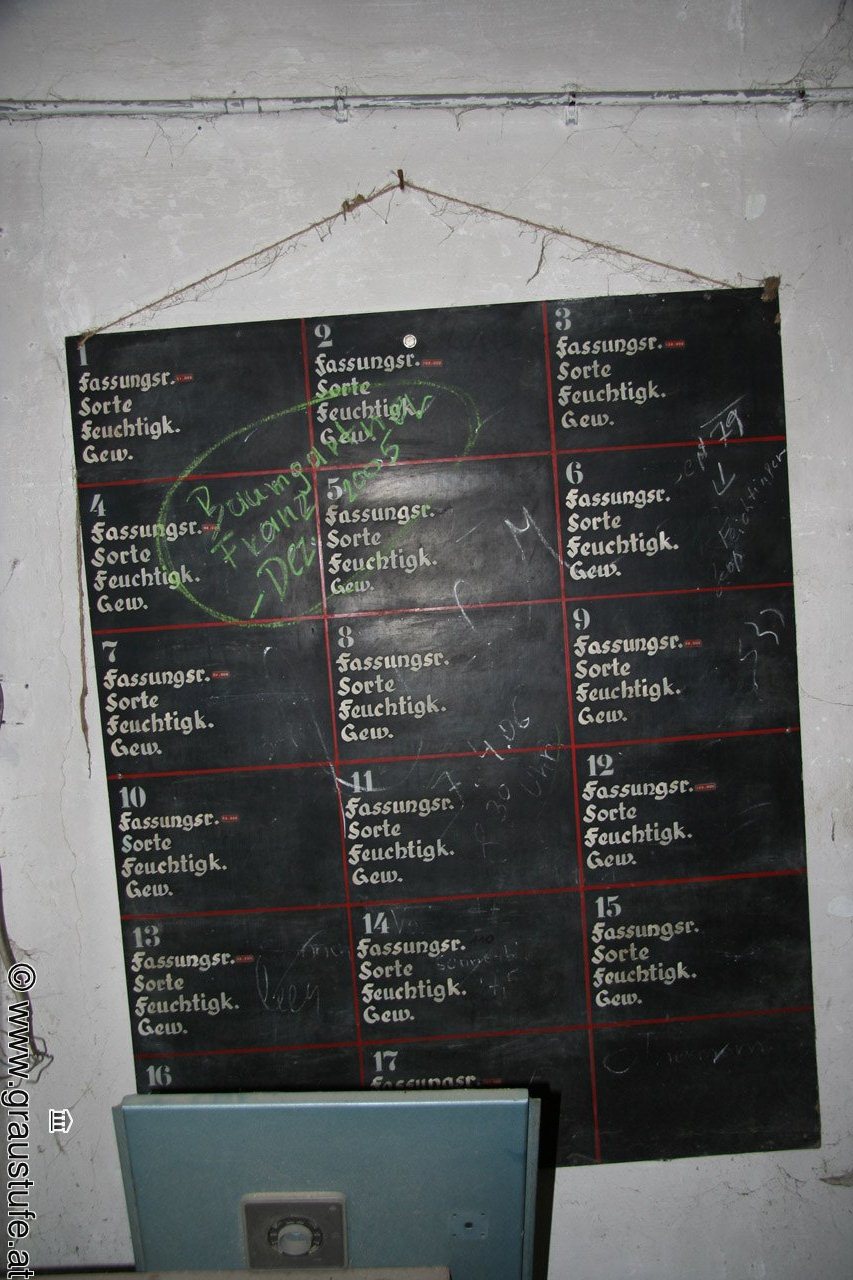 1
Fassungsr.
Sorte
Feuchtigk.
Gew.
2
Fassungsr.
Sorte
Feuchtigk.
Gew.
3
Fassungsr.
Sorte
Feuchtigk.
Gew.
Baumgartner
Franz 2005
- Dez.
4
Fassungsr.
Sorte
Feuchtigk.
Gew.
5
Fassungsr.
Sorte
Feuchtigk.
Gew.
M
6
Fassungsr.
Sorte
Feuchtigk.
Gew.
79
7
Fassungsr.
Sorte
Feuchtigk.
Gew.
8
Fassungsr.
Sorte
Feuchtigk.
Gew.
9
Fassungsr.
Sorte
Feuchtigk.
Gew.
10
Fassungsr.
Sorte
Feuchtigk.
Gew.
11
Fassungsr.
Sorte
Feuchtigk.
Gew.
7. 4.06
30 Uhr
12
Fassungsr.
Sorte
Feuchtigk.
Gew.
13
Fassungsr.
Sorte
Feuchtigk.
Gew.
leer
14
Fassungsr.
Sorte
Feuchtigk.
Gew.
15
Fassungsr.
Sorte
Feuchtigk.
Gew.
16
17
Fassungsr.
© www.graustufe.at